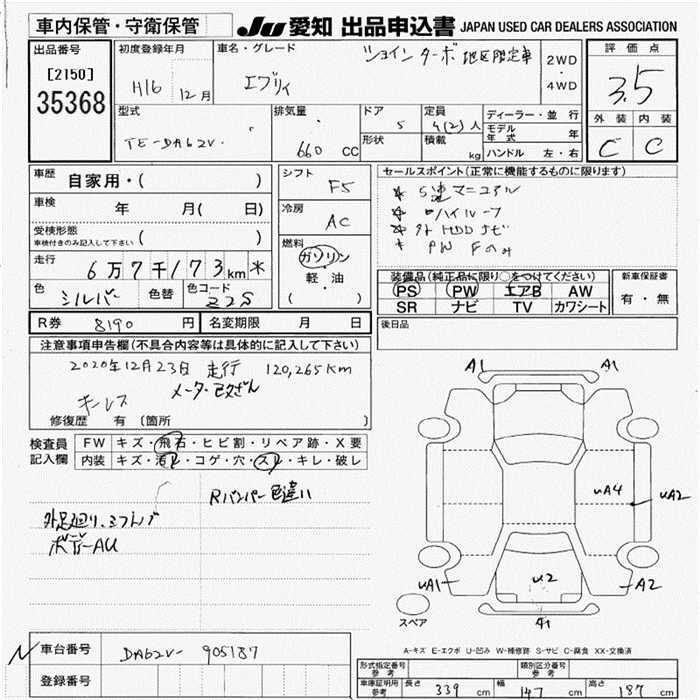 車内保管・守衛保管
JU 愛知 出品申込書 JAPAN USED CAR DEALERS ASSOCIATION
出品番号
[2150]
35368
初度登録年月
H16 12月
車名・グレード
ジョイン ターボ 地区限定車
エブリィ
2WD
・
4WD
評価点
3.5
外装 内装
C C
型式
TE-DA62V
排気量
660 CC
ドア
5
形状
定員
4(2)人
積載
kg
ディーラー・並行
モデル年式 年
ハンドル 左・右
車歴 自家用・( )
車検 年 月( 日)
受検形態
車検付きのみ記入して下さい ( )
走行
6万7千173km
色
シルバー
色替
色コード
Z2S
シフト
F5
冷房
AC
燃料
ガソリン
・
軽・油
( )
セールスポイント(正常に機能するものに限ります)
* 5速マニュアル
* ハイルーフ
* 外 HDDナビ
* PW Fのみ
装備品(純正品に限り○をつけてください)
PS PW エアB AW
SR ナビ TV カワシート
新車保証書
有・無
後日品
R券 8190 円
名変期限 月 日
注意事項申告欄(不具合内容等は具体的に記入して下さい)
2020年12月23日 走行 120,265KM
メーター改ざん
キーレス
修復歴 有 〔箇所 〕
検査員
記入欄
FW キズ・飛石・ヒビ割・リペア跡・X要
内装 キズ・汚レ・コゲ・穴・スレ・キレ・破レ
Rバンパー色違い
外足廻り、
ボデーAU
A1 A1
UA4 UA2
UA1 U2 A2
A1
スペア
A-キズ E-エクボ U-凹み W-補修跡 S-サビ C-腐食 XX-交換済
車台番号 DA62V-905187
登録番号
形式指定番号
参考
類別区分番号
参考
車庫証明用
参考
長さ 339 cm 幅 147 cm 高さ 187 cm